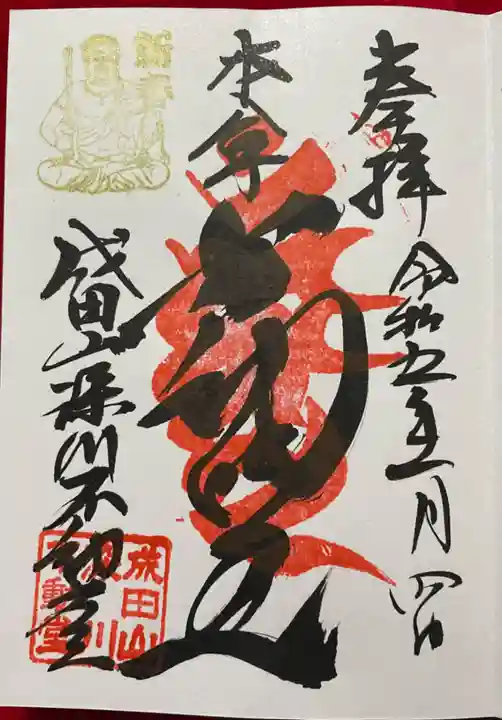 奉拝
令和五年一月四日
本尊
成田山深川不動堂
新春
成田山
深川
不動堂